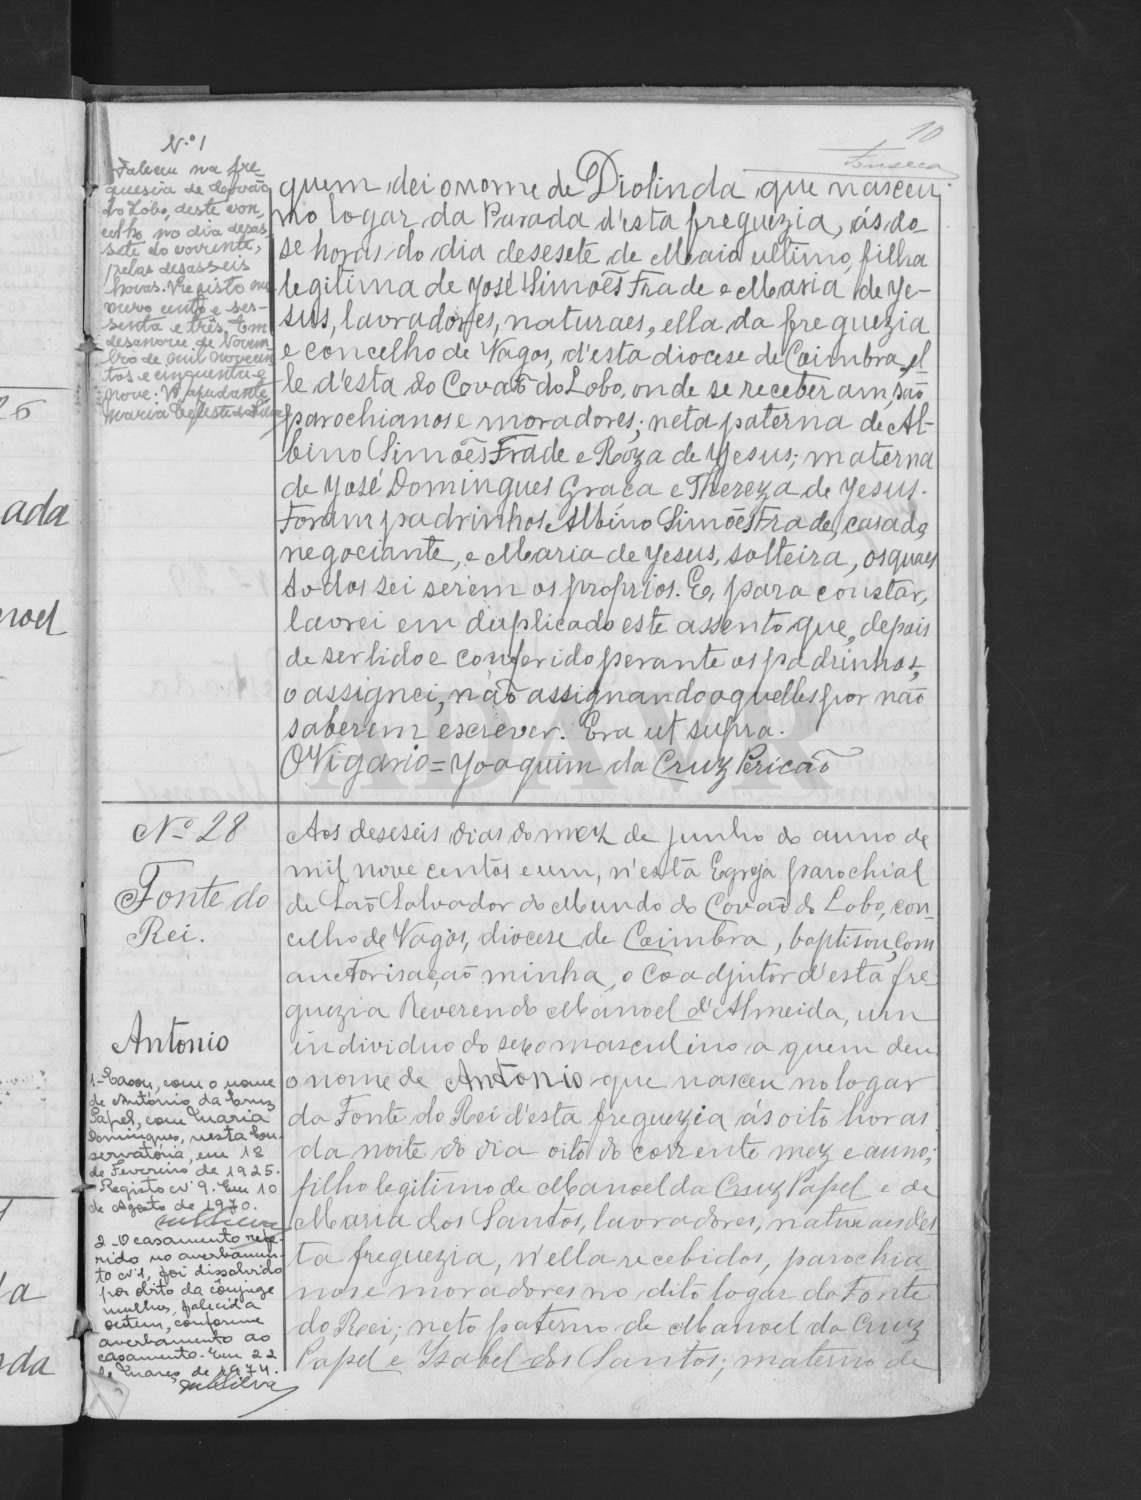 10
Fonseca
N.º 1
Faleceu na fre-
guesia de Covão
do Lobo, deste con-
celho, no dia desas-
sete do corrente,
pelas desasseis
horas. Registo nu-
mero cento e ses-
senta e três. Em
desanove de Novem-
bro de mil novecen-
tos e cinquenta e
nove. O ajudante,
Maria Celeste da Silva
quem dei o nome de Diolinda que nasceu
no logar da Parada d'esta freguezia, ás do-
se horas do dia desesete de Maio ultimo, filha
legitima de José Simões Frade e Maria de Je-
sus, lavradores, naturaes, ella da freguezia
e concelho de Vagos, d'esta diocese de Coimbra, el-
le d'esta do Covão do Lobo, onde se receberam, são
parochianos e moradores; neta paterna de Al-
bino Simões Frade e Roza de Jesus; materna
de José Domingues Graça e Thereza de Jesus.
Foram padrinhos Albino Simões Frade, casado,
negociante, e Maria de Jesus, solteira, os quaes
todos sei serem os proprios. E, para constar,
lavrei em duplicado este assento que, depois
de ser lido e conferido perante os padrinhos,
o assignei, não assignando aquelles por não
saberem escrever. Era ut supra.
O Vigario = Joaquim da Cruz Pericão
ADAVR
Nº 28
Fonte do
Rei.
Antonio
1- Casou, com o nome
de António da Cruz
Papel, com Maria
Domingues, nesta Con-
servatória, em 18
de Fevereiro de 1925.
Registo nº 9. Em 10
de Agosto de 1970.
2- O casamento refe-
rido no averbamen-
to nº 1, foi dissolvido
por óbito da cônjuge
mulher, falecida
ontem, conforme
averbamento ao
casamento. Em 22
de Março de 1974.
Aos deseseis dias do mez de junho do anno de
mil nove centos e um, n'esta Egreja parochial
de São Salvador do Mundo do Covão do Lobo, con-
celho de Vagos, diocese de Coimbra, baptisou, com
auctorisação minha, o Coadjutor d'esta fre-
guezia Reverendo Manoel d'Almeida, um
individuo do sexo masculino a quem deu
o nome de Antonio que nasceu no logar
da Fonte do Rei d'esta freguezia ás oito horas
da noite do dia oito do corrente mez e anno;
filho legitimo de Manoel da Cruz Papel e de
Maria dos Santos, lavradores, naturaes des-
ta freguezia, n'ella recebidos, parochia-
nos e moradores no dito logar da Fonte
do Rei; neto paterno de Manoel da Cruz
Papel e Izabel dos Santos; materno de
26
ada
noel